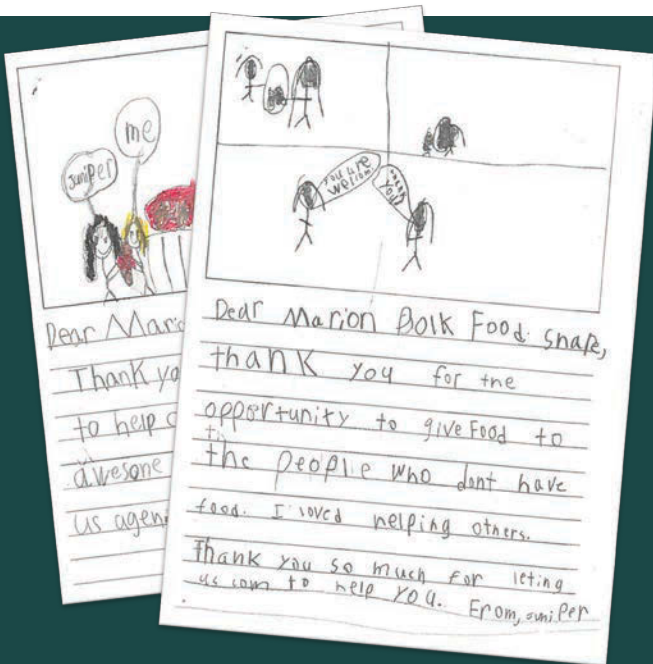 juniper
me
Dear Mario
Thank yo
to help
awesone
us agen
you are
welcom
thank
you
Dear Marion Bolk Food shaR,
thank you for tne
opportunity to give Food to
the people who dont have
food. I loved nelping others.
Thank you so much for leting
us com to help you. From, juniper